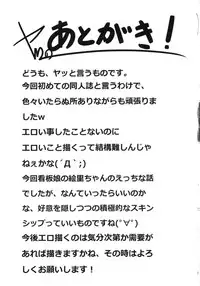 ヤッの
あとがき！
どうも、ヤッと言うものです。
今回初めての同人誌と言うわけで、
色々いたらぬ所ありながらも頑張り
ましたw
エロい事したことないのに
エロいこと描くって結構難しんじゃ
ねぇかな(´Д｀;)
今回看板娘の絵里ちゃんのえっちな話
でしたが、なんていったらいいのか
な、好意を隠しつつの積極的なスキン
シップっていいものですね(ﾟ∀ﾟ)
今後エロ描くのは気分次第か需要が
あれば描きますかね、その時はよろ
しくお願いします！